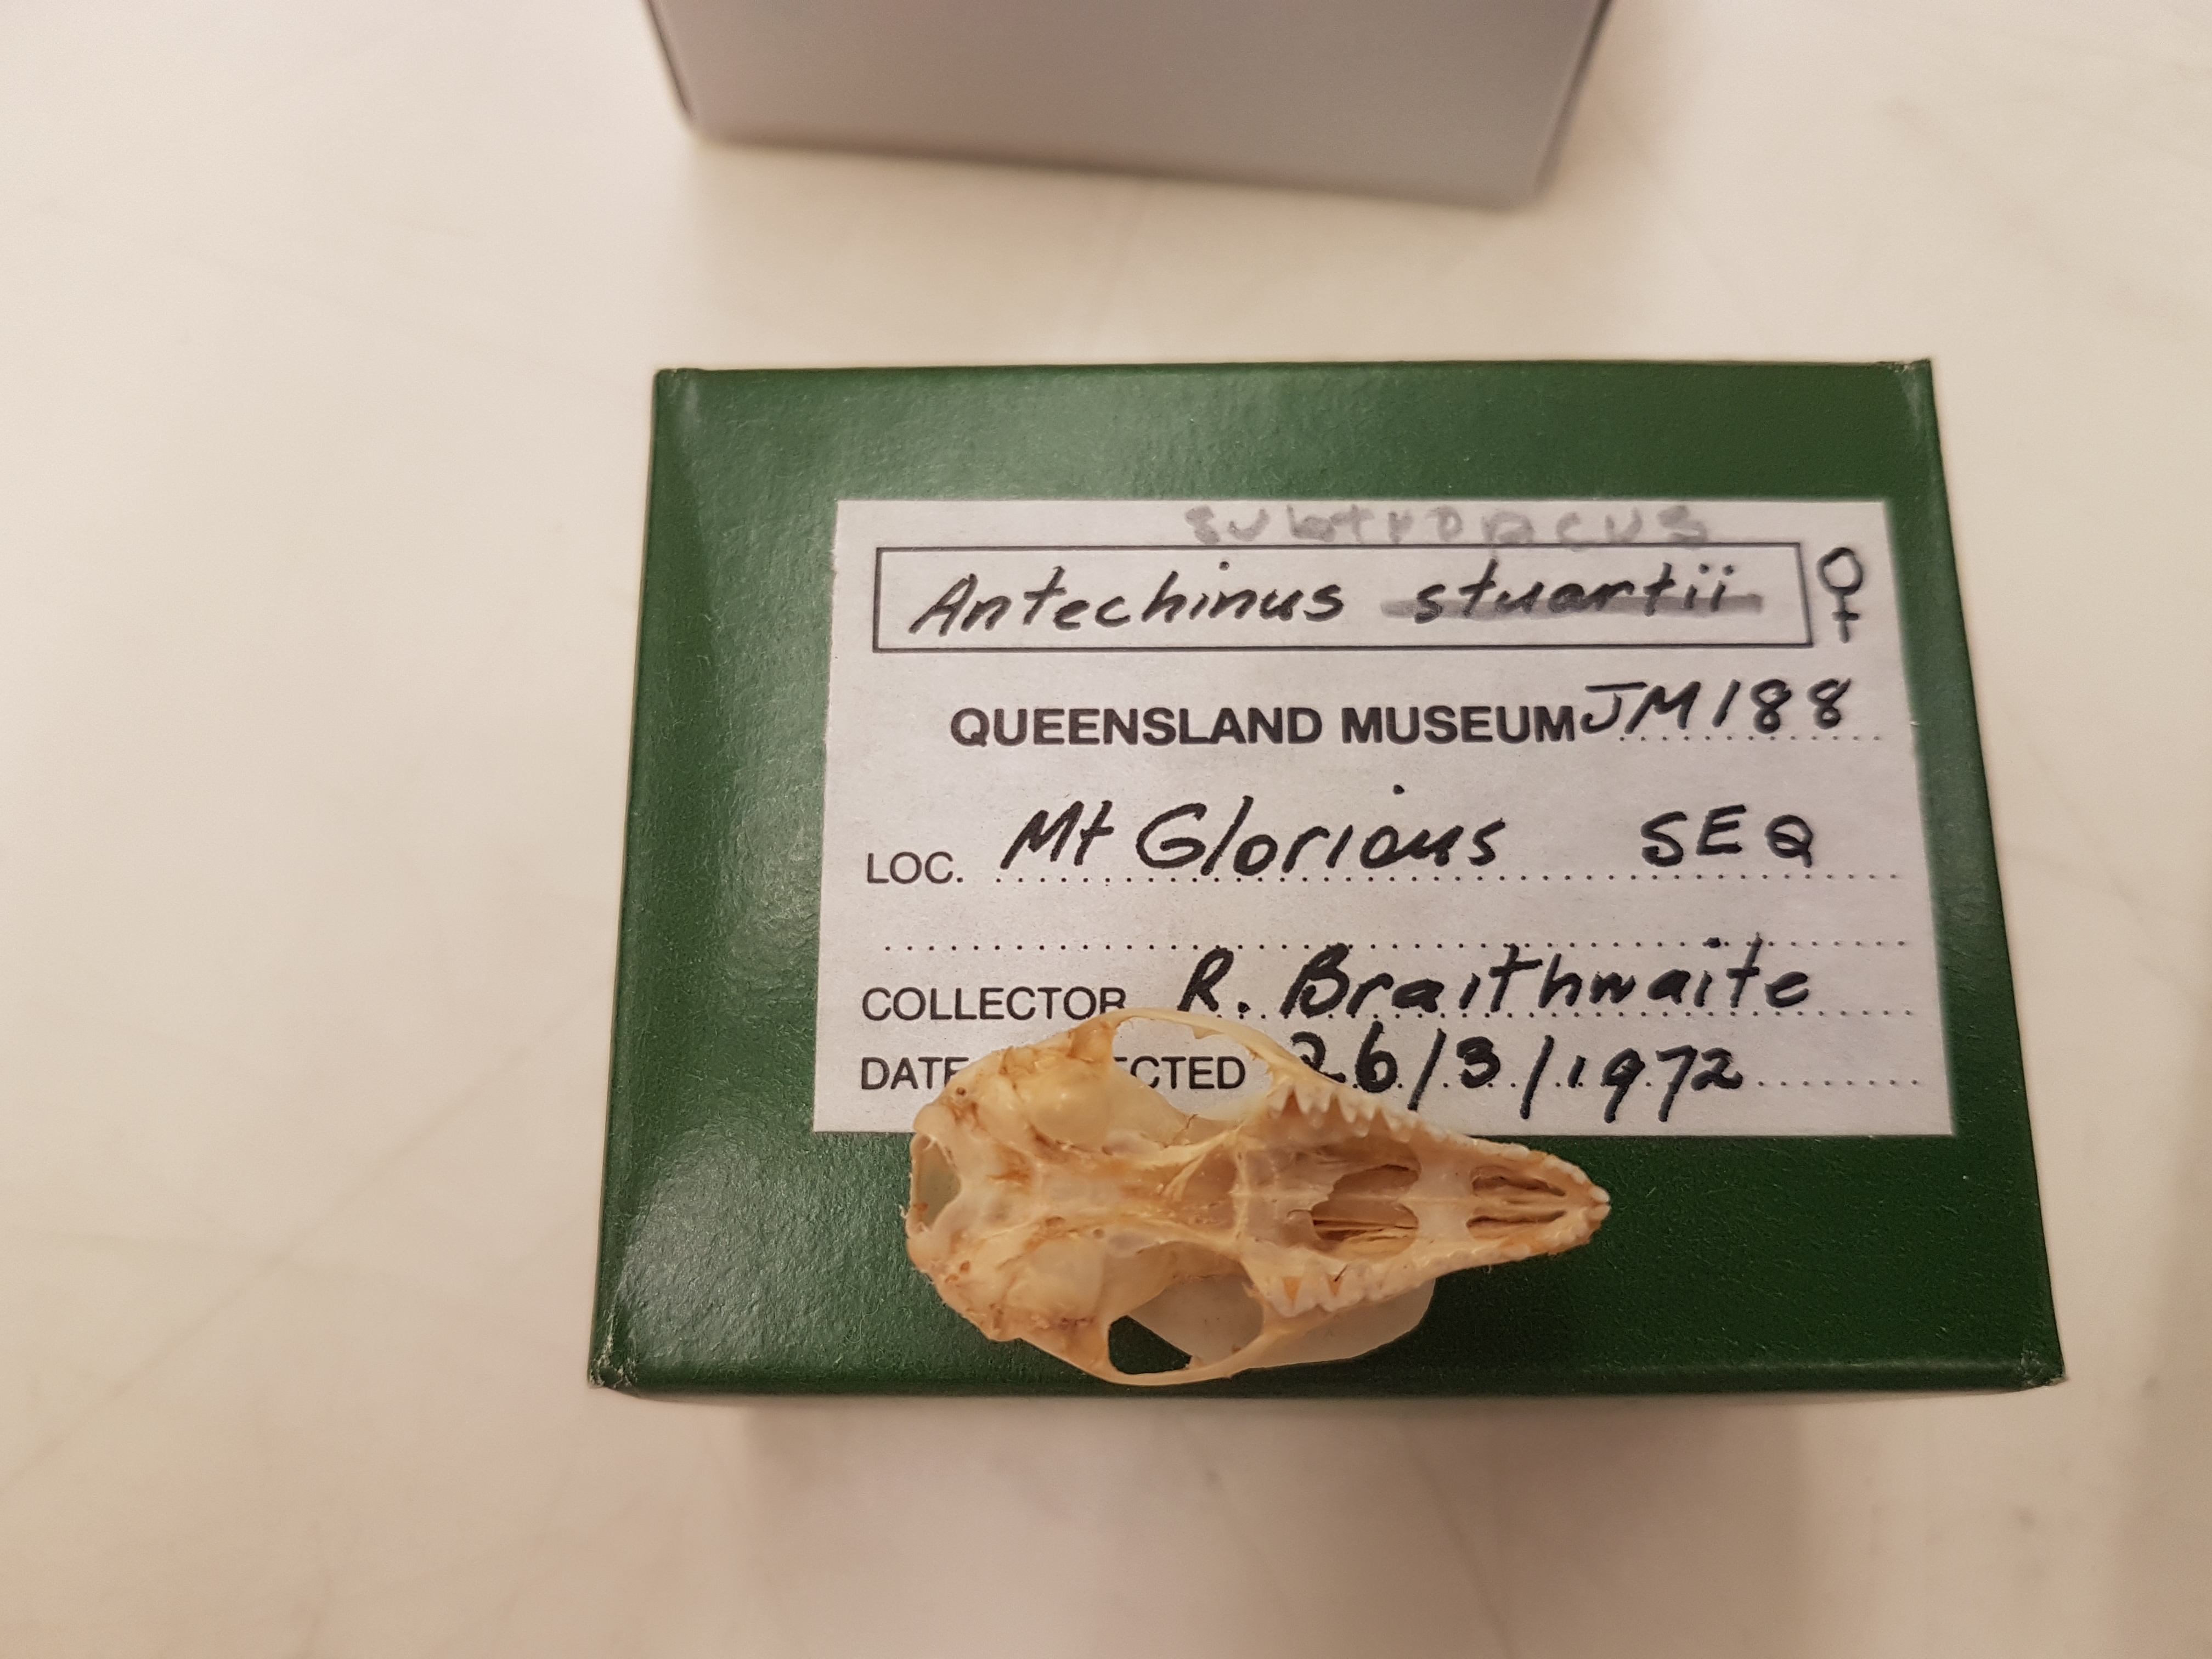 subtropicus
Antechinus stuartii ♀
QUEENSLAND MUSEUM JM188
LOC. Mt Glorious SEQ
COLLECTOR R. Braithwaite
DATE COLLECTED 26/3/1972